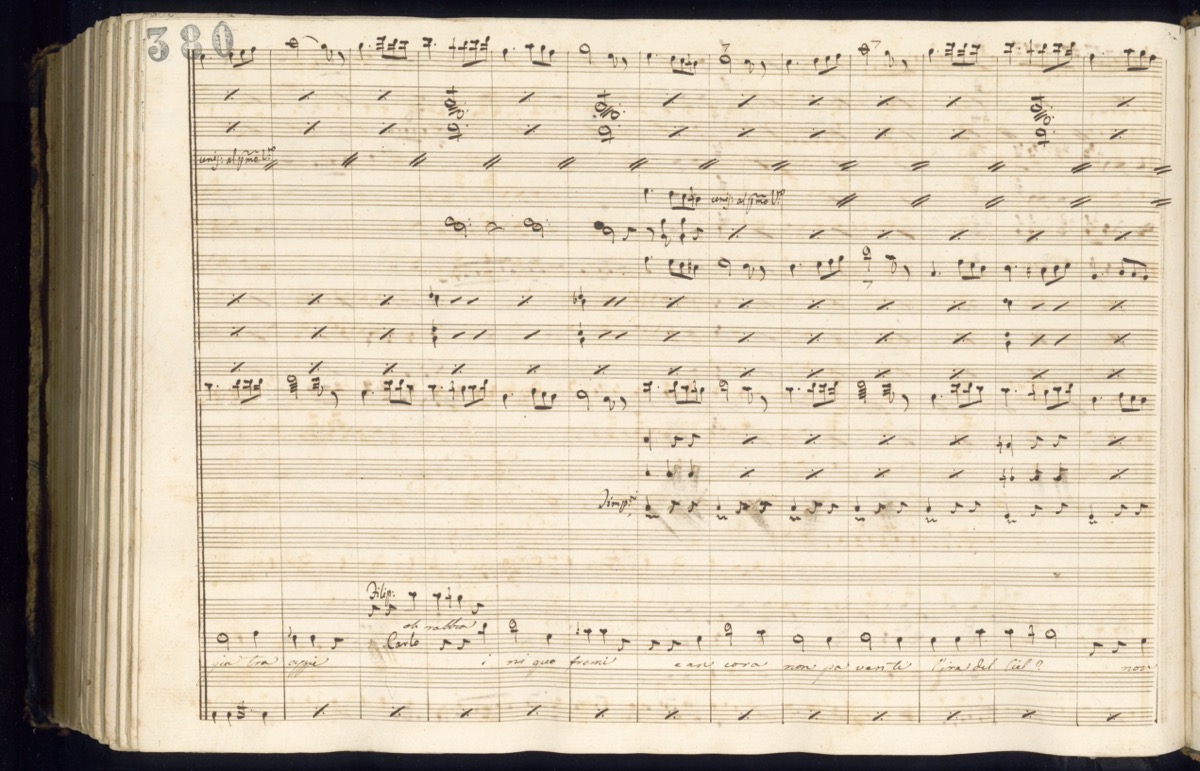 380
unis: al Pmo V.o
unis: al Pmo V.o
Timp.i
Filip:
oh rabbia
Carlo
i ni quo fremi e an cora non pa venti l'ira del Ciel? non